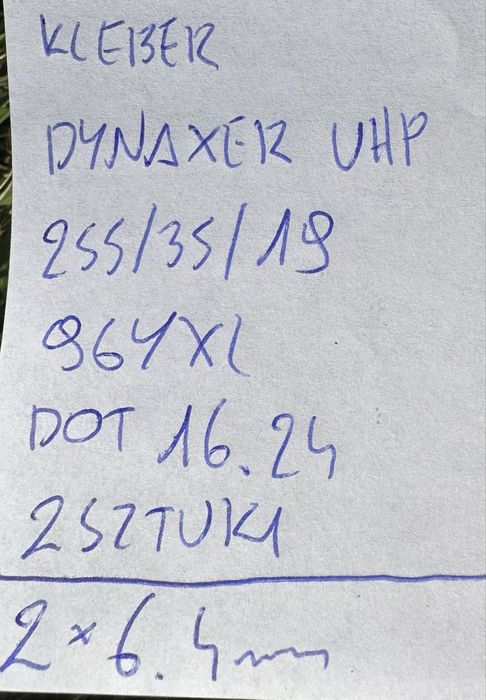 KLEBER
DYNAXER UHP
255/35/19
96YXL
DOT 16.24
2 SZTUKI
2 × 6.4mm